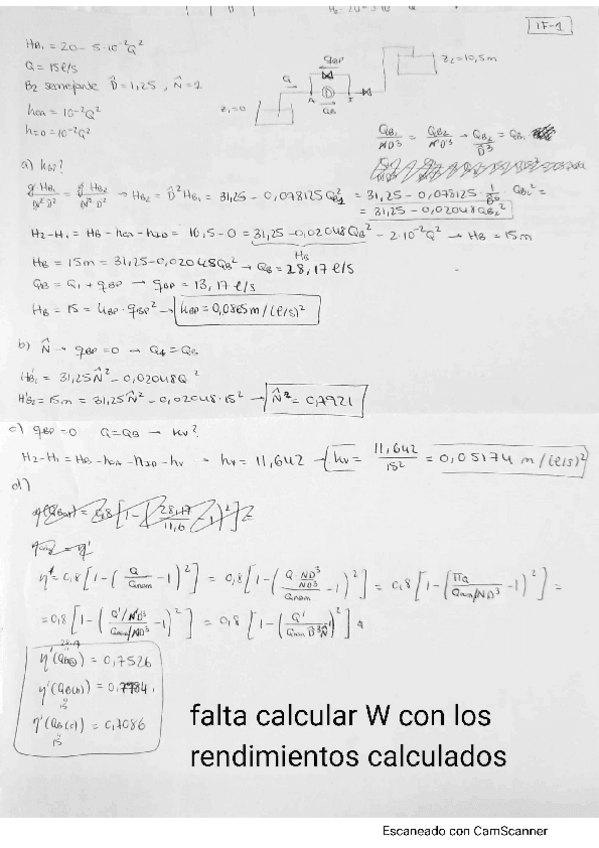 IF-1
H_B1 = 20 - 5·10⁻²Q²
Q = 15 l/s
B2 semejante D̂ = 1,25 , N̂ = 1
h_CA = 10⁻²Q²
h = 0 = 10⁻²Q²
z₁ = 0
z₂ = 10,5m
Q
q_BP
Q_B
A
I
a) k_BP?
H_B2 = D̂²H_B1 = 31,25 - 0,078125 Q_B1² = 31,25 - 0,078125 · Q_B2² =
= 31,25 - 0,02048 Q_B2²
H₂-H₁ = H_B - h_CA - h_ID = 10,5 - 0 = 31,25 - 0,02048 Q_B² - 2·10⁻²Q² → H_B = 15m
H_B
H_B = 15m = 31,25 - 0,02048 Q_B² → Q_B = 28,17 l/s
Q_B = Q₁ + q_BP → q_BP = 13,17 l/s
H_B = 15 = k_BP · q_BP² → k_BP = 0,0865 m/(l/s)²
b) N̂ → q_BP = 0 →
H'_B2 = 31,25 N̂² - 0,02048 Q²
H'_B2 = 15m = 31,25 N̂² - 0,02048 · 15² → = 0,7921
c) q_BP = 0 Q = Q_B → k_v?
H₂-H₁ = H_B - h_CA - h_ID - h_v → h_v = 11,642 → k_v = 11,642/15² = 0,05174 m/(l/s)²
d)
η' = 0,8[1-(Q/Q_nom - 1)²] = 0,8[1-( - 1)²] = 0,8[1-( - 1)²] =
= 0,8[1-( - 1)²] = 0,8[1-( - 1)²]
28,17
η'(Q_B(a)) = 0,7526
η'(Q_B(b)) = 0,7984
15
η'(Q_B(c)) = 0,7086
15
falta calcular W con los
rendimientos calculados
Escaneado con CamScanner